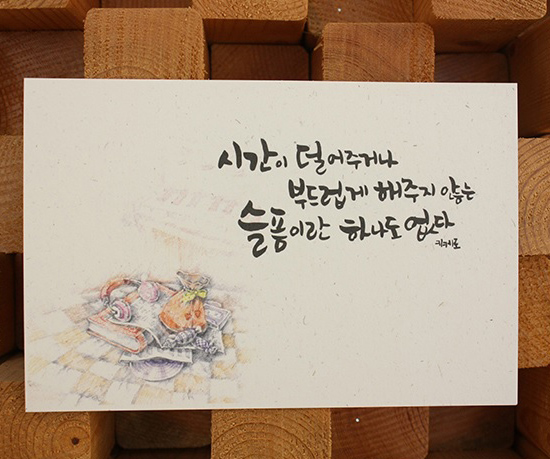 시간이 덜어주거나
부드럽게 해주지 않는
슬픔이란 하나도 없다
키케로